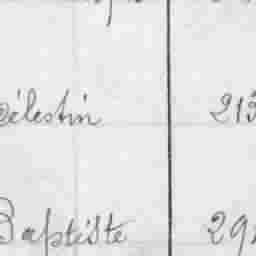 Célestin 213
Baptiste 29